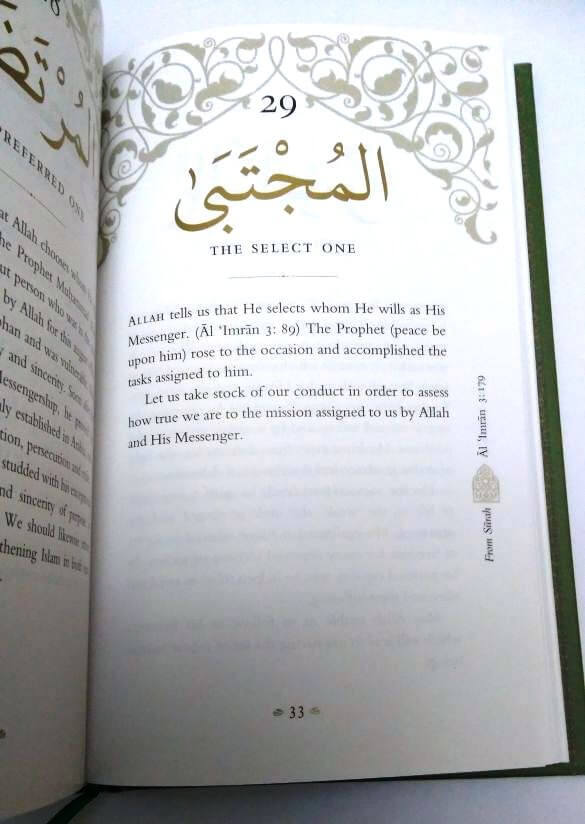 المُرْتَضَىٰ
PREFERRED ONE
at Allah chooses whom
he Prophet Muhammad
ut person who was in the
by Allah for this
phan and was
y and sincerity.
Messengership, he
ly established in
tion, persecution and
studded with his
nd sincerity of purpose
We should likewise
thening Islam in both
29
المُجْتَبَىٰ
THE SELECT ONE
ALLAH tells us that He selects whom He wills as His
Messenger. (Āl ʿImrān 3: 89) The Prophet (peace be
upon him) rose to the occasion and accomplished the
tasks assigned to him.
Let us take stock of our conduct in order to assess
how true we are to the mission assigned to us by Allah
and His Messenger.
From Sūrah Āl ʿImrān 3:179
33